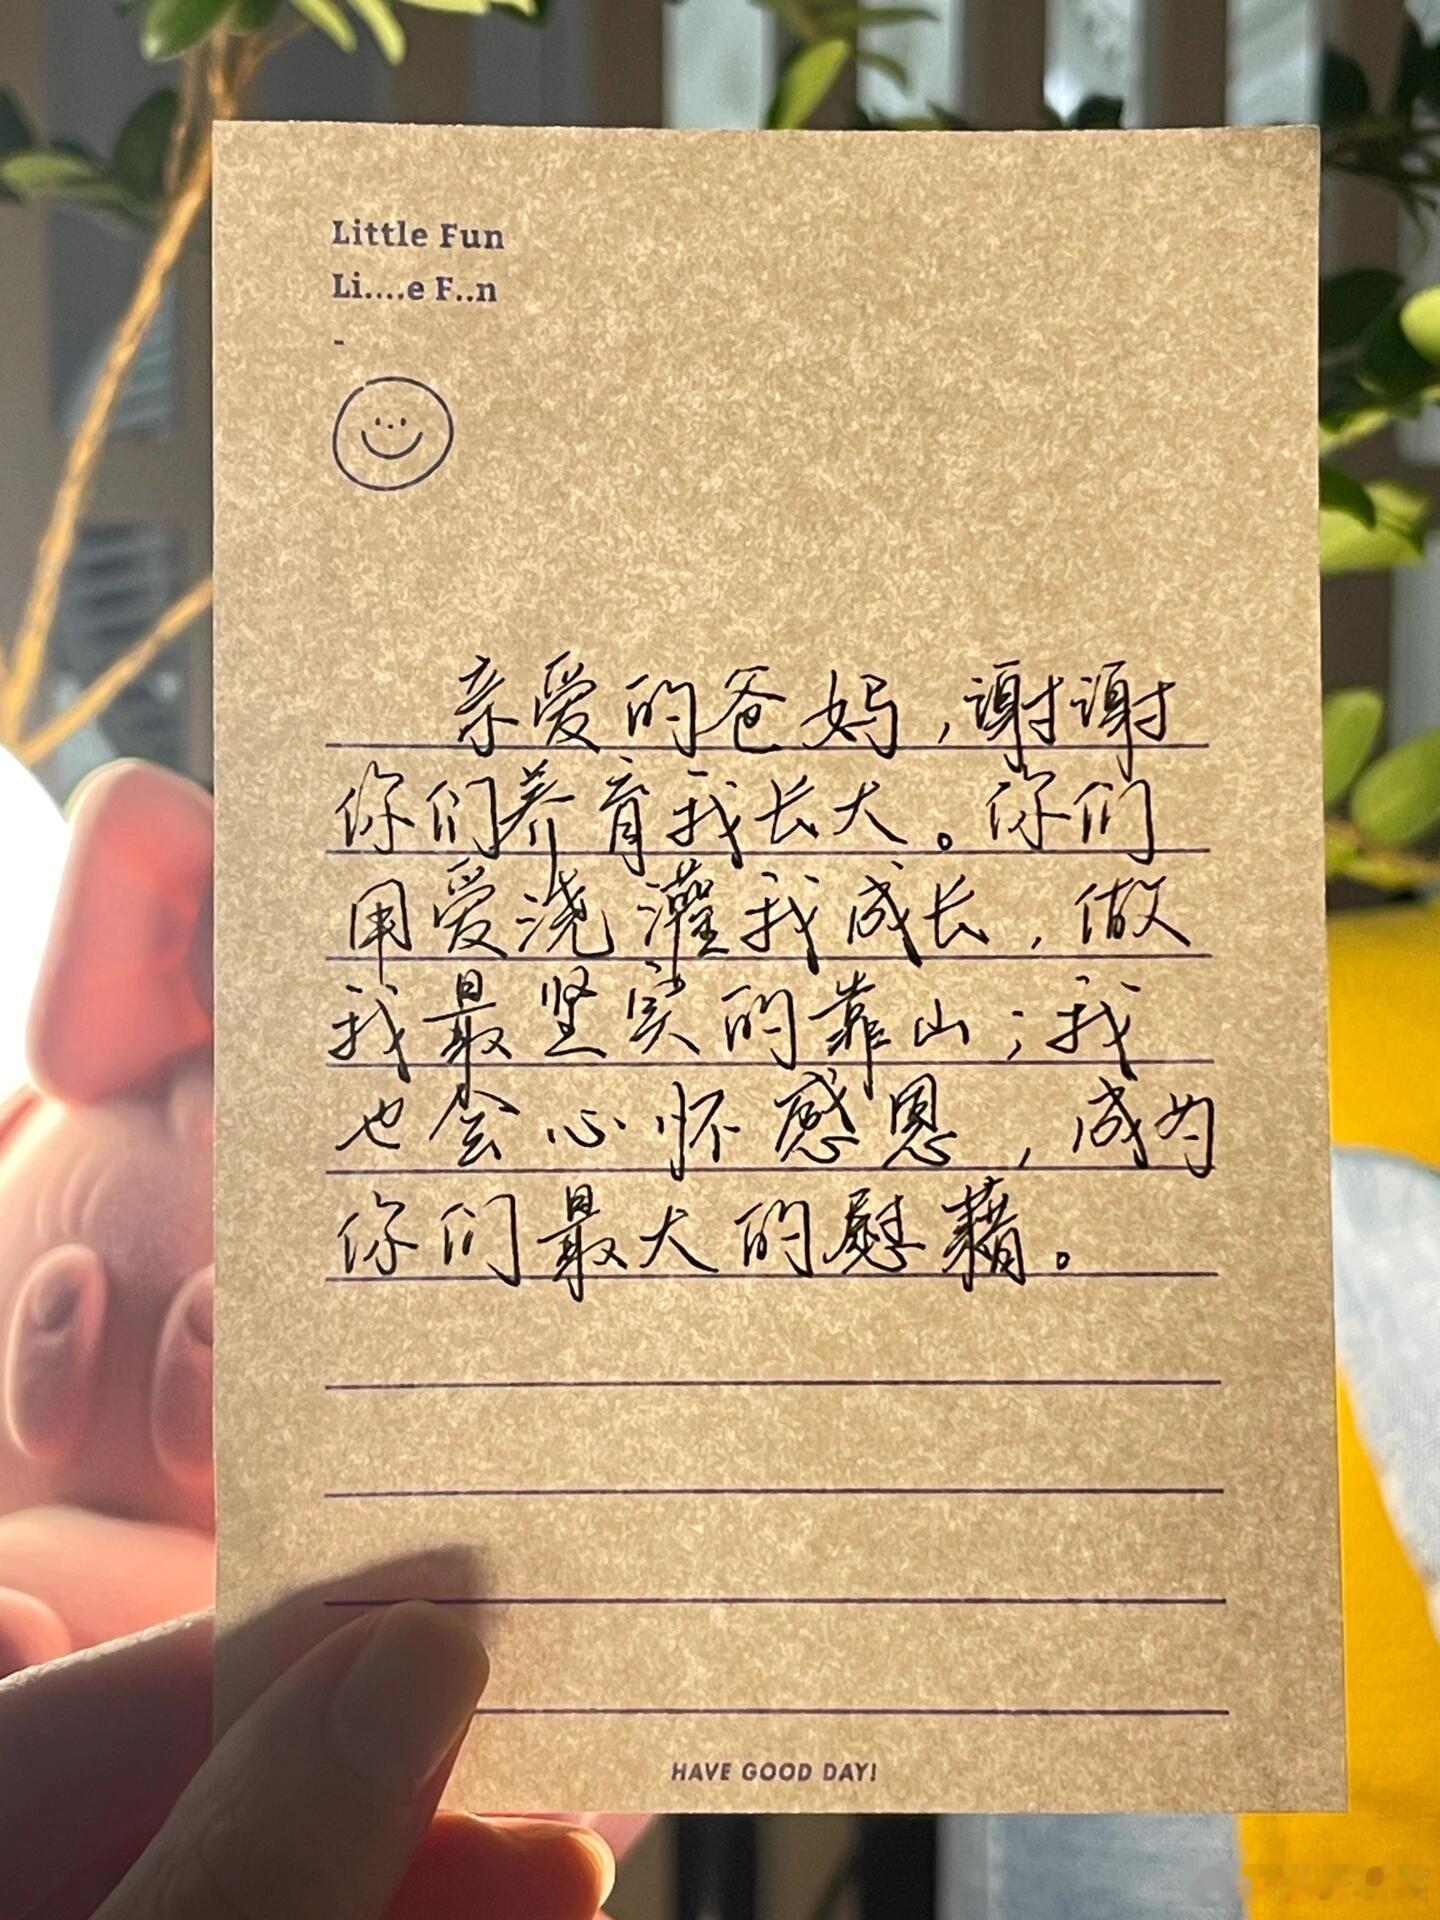 Little Fun
Li....e F..n
-
亲爱的爸妈，谢谢
你们养育我长大。你们
用爱浇灌我成长，做
我最坚实的靠山；我
也会心怀感恩，成为
你们最大的慰藉。
HAVE GOOD DAY!